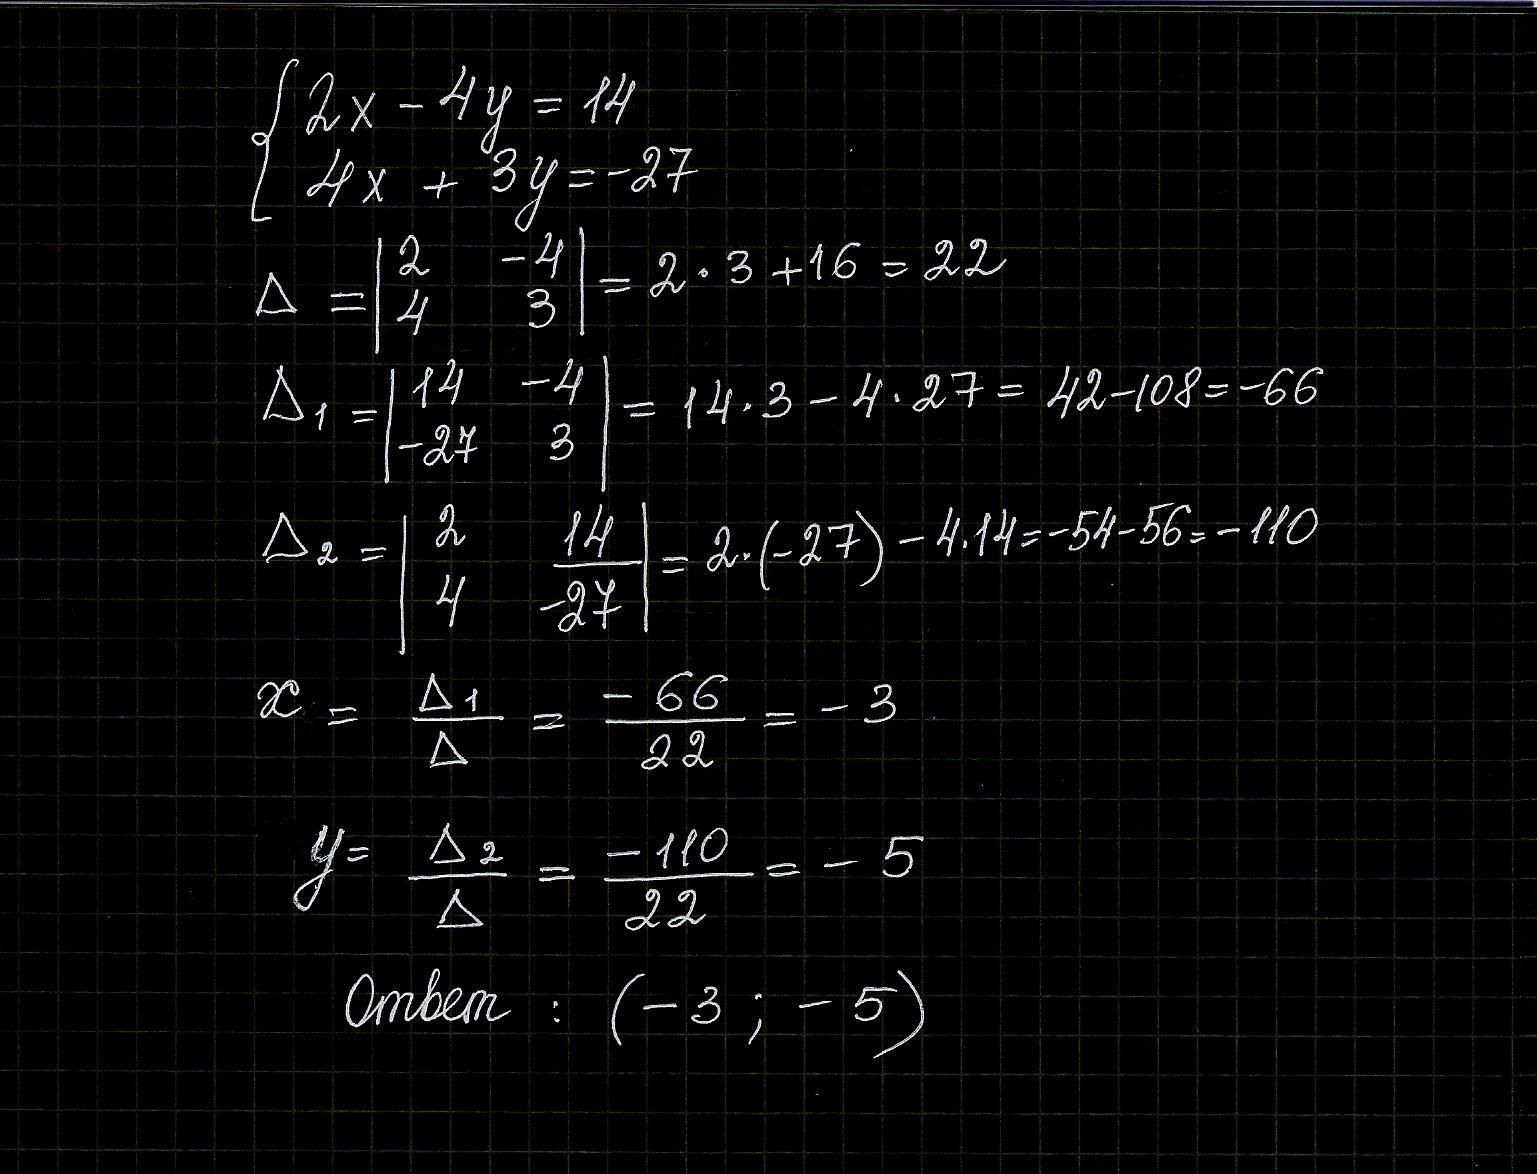 { 2x - 4y = 14
4x + 3y = -27
Δ = | 2 -4 | = 2·3 + 16 = 22
| 4 3 |
Δ1 = | 14 -4 | = 14·3 - 4·27 = 42 - 108 = -66
| -27 3 |
Δ2 = | 2 14 | = 2·(-27) - 4·14 = -54 - 56 = -110
| 4 -27 |
x = Δ1/Δ = -66/22 = -3
y = Δ2/Δ = -110/22 = -5
Ответ : (-3 ; -5)